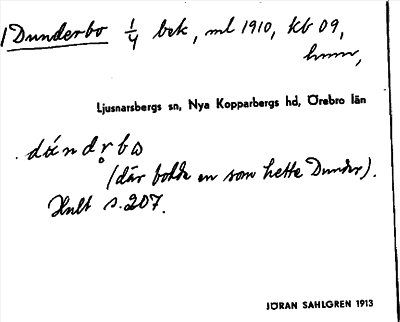 1 Dunderbo 1/4 bek, ml 1910, kb 09,
hmm,
Ljusnarsbergs sn, Nya Kopparbergs hd, Örebro län
dándr̥bω
(där bodde en som hette Dunder).
Hult s. 207.
JÖRAN SAHLGREN 1913